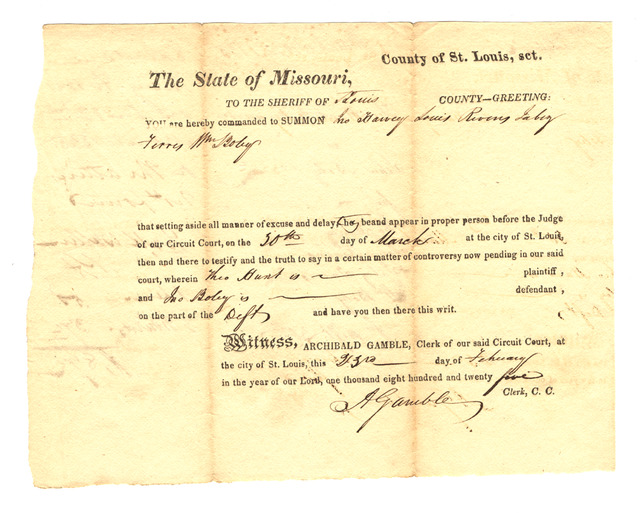 County of St. Louis, sct.
The State of Missouri,
TO THE SHERIFF OF St Louis COUNTY—GREETING:
YOU are hereby commanded to SUMMON Jno Harvey Louis Rivers
Wm Boley
that setting aside all manner of excuse and delay, they be and appear in proper person before the Judge
of our Circuit Court, on the 30th day of March at the city of St. Louis,
then and there to testify and the truth to say in a certain matter of controversy now pending in our said
court, wherein Theo Hunt is plaintiff,
and Jno Boley is defendant,
on the part of the Deft and have you then there this writ.
Witness, ARCHIBALD GAMBLE, Clerk of our said Circuit Court, at
the city of St. Louis, this 23rd day of February
in the year of our Lord, one thousand eight hundred and twenty five
A Gamble Clerk, C. C.